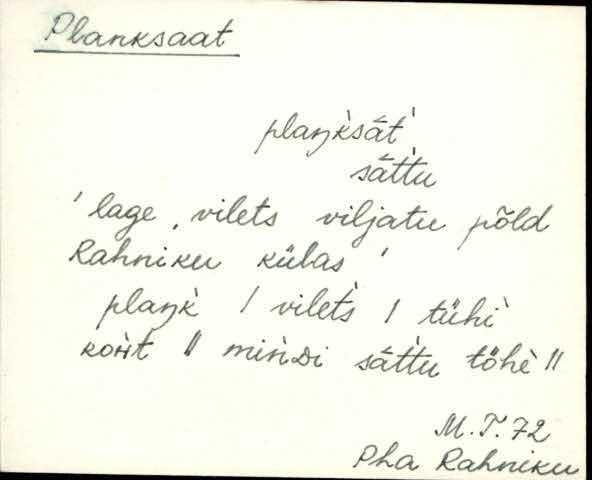 Planksaat
plaŋ̀ksāt̀
sāt̀tu
' lage, vilets viljatu põld
Rahniku külas '
plaŋk̀ / vilet̀s / tühì
koǹt // miǹDi sāt̀tu tȫhè //
M.T. 72
Pha Rahniku